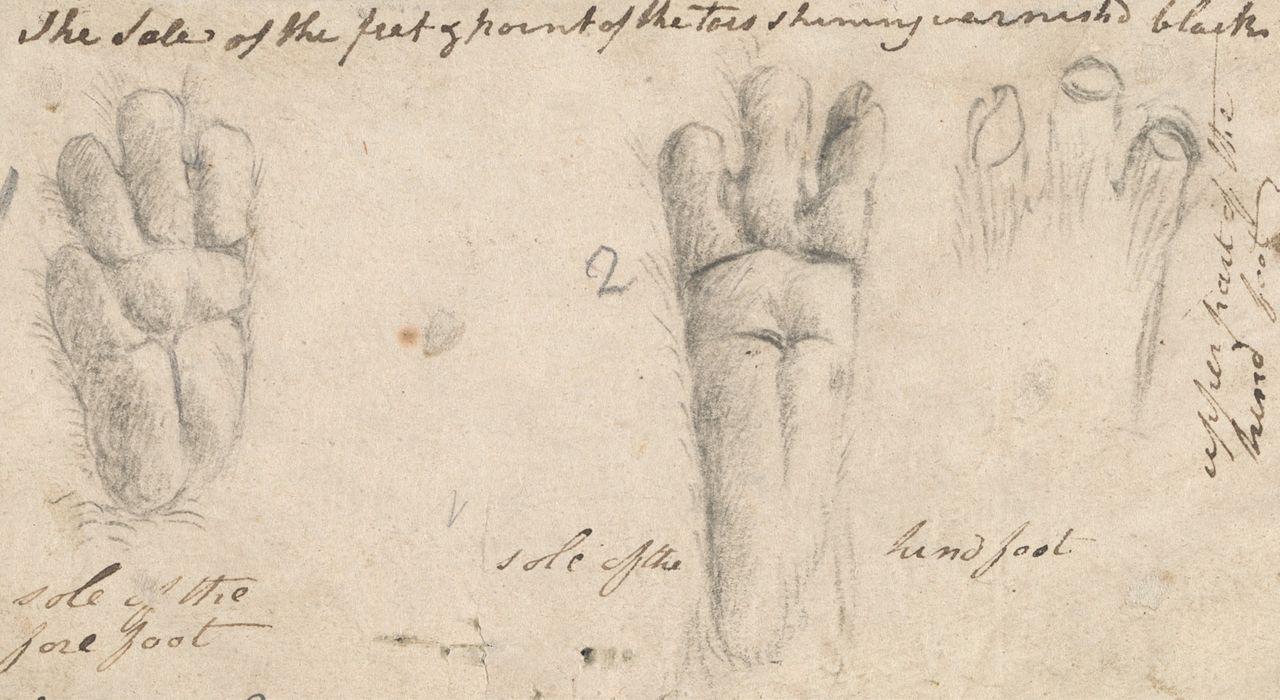 The Sole of the feet & point of the toes shining varnishd black
2
sole of the hind foot
sole of the
fore foot
upper part of the
hind foot